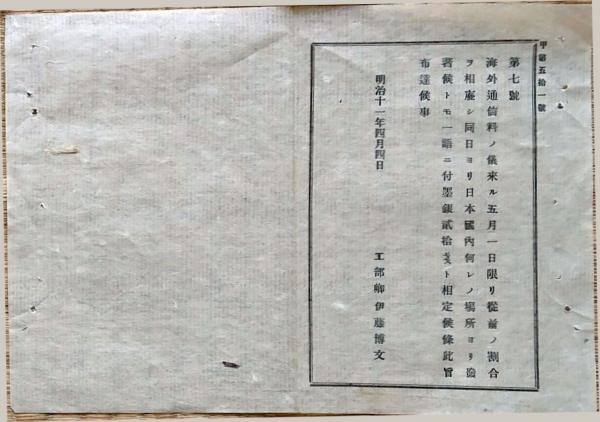 甲第五拾一號
第七號
海外通信料ノ儀來ル五月一日限リ從前ノ割合
ヲ相廢シ同日ヨリ日本國內何レノ場所ヨリ發
著候トモ一語ニ付墨銀貳拾 ト相定候條此旨
布達候事
明治十一年四月四日
工部卿伊藤博文